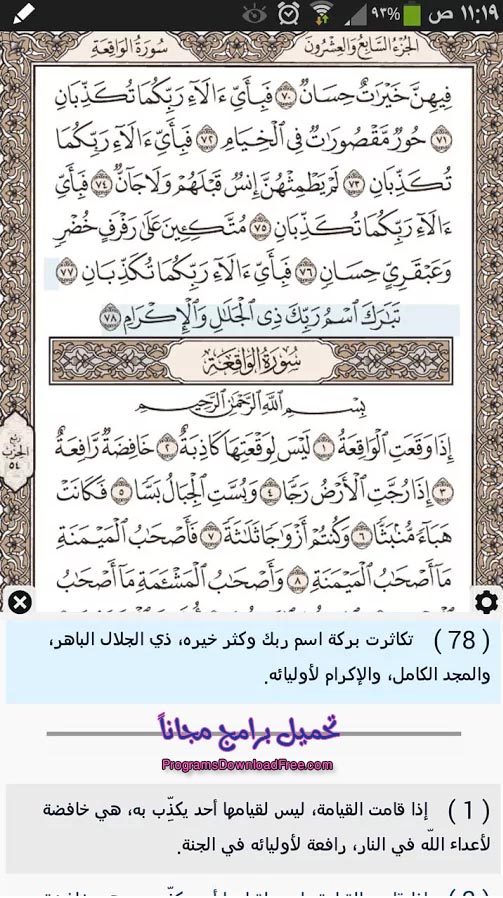 ١١:١٩ ص ٩٣%
الجُزْءُ السَّابِعُ وَالْعِشْرُون سُورَةُ الوَاقِعَة
فِيهِنَّ خَيْرَاتٌ حِسَانٌ ٧٠ فَبِأَيِّ ءَالَآءِ رَبِّكُمَا تُكَذِّبَانِ
٧١ حُورٌ مَّقْصُورَاتٌ فِي الْخِيَامِ ٧٢ فَبِأَيِّ ءَالَآءِ رَبِّكُمَا
تُكَذِّبَانِ ٧٣ لَمْ يَطْمِثْهُنَّ إِنسٌ قَبْلَهُمْ وَلَا جَآنٌّ ٧٤ فَبِأَيِّ
ءَالَآءِ رَبِّكُمَا تُكَذِّبَانِ ٧٥ مُتَّكِـِٔينَ عَلَىٰ رَفْرَفٍ خُضْرٍ
وَعَبْقَرِيٍّ حِسَانٍ ٧٦ فَبِأَيِّ ءَالَآءِ رَبِّكُمَا تُكَذِّبَانِ ٧٧
تَبَٰرَكَ اسْمُ رَبِّكَ ذِي الْجَلَٰلِ وَالْإِكْرَامِ ٧٨
سُورَةُ الوَاقِعَةِ
بِسْمِ اللَّهِ الرَّحْمَٰنِ الرَّحِيمِ
إِذَا وَقَعَتِ الْوَاقِعَةُ ١ لَيْسَ لِوَقْعَتِهَا كَاذِبَةٌ ٢ خَافِضَةٌ رَّافِعَةٌ
٣ إِذَا رُجَّتِ الْأَرْضُ رَجًّا ٤ وَبُسَّتِ الْجِبَالُ بَسًّا ٥ فَكَانَتْ
هَبَآءً مُّنۢبَثًّا ٦ وَكُنتُمْ أَزْوَٰجًا ثَلَٰثَةً ٧ فَأَصْحَٰبُ الْمَيْمَنَةِ
مَآ أَصْحَٰبُ الْمَيْمَنَةِ ٨ وَأَصْحَٰبُ الْمَشْـَٔمَةِ مَآ أَصْحَٰبُ
ربع
الحزب
٥٤
(78) تكاثرت بركة اسم ربك وكثر خيره، ذي الجلال الباهر،
والمجد الكامل، والإكرام لأوليائه.
تحميل برامج مجاناً
ProgramsDownloadFree.com
(1) إذا قامت القيامة، ليس لقيامها أحد يكذِّب به، هي خافضة
لأعداء اللّه في النار، رافعة لأوليائه في الجنة.